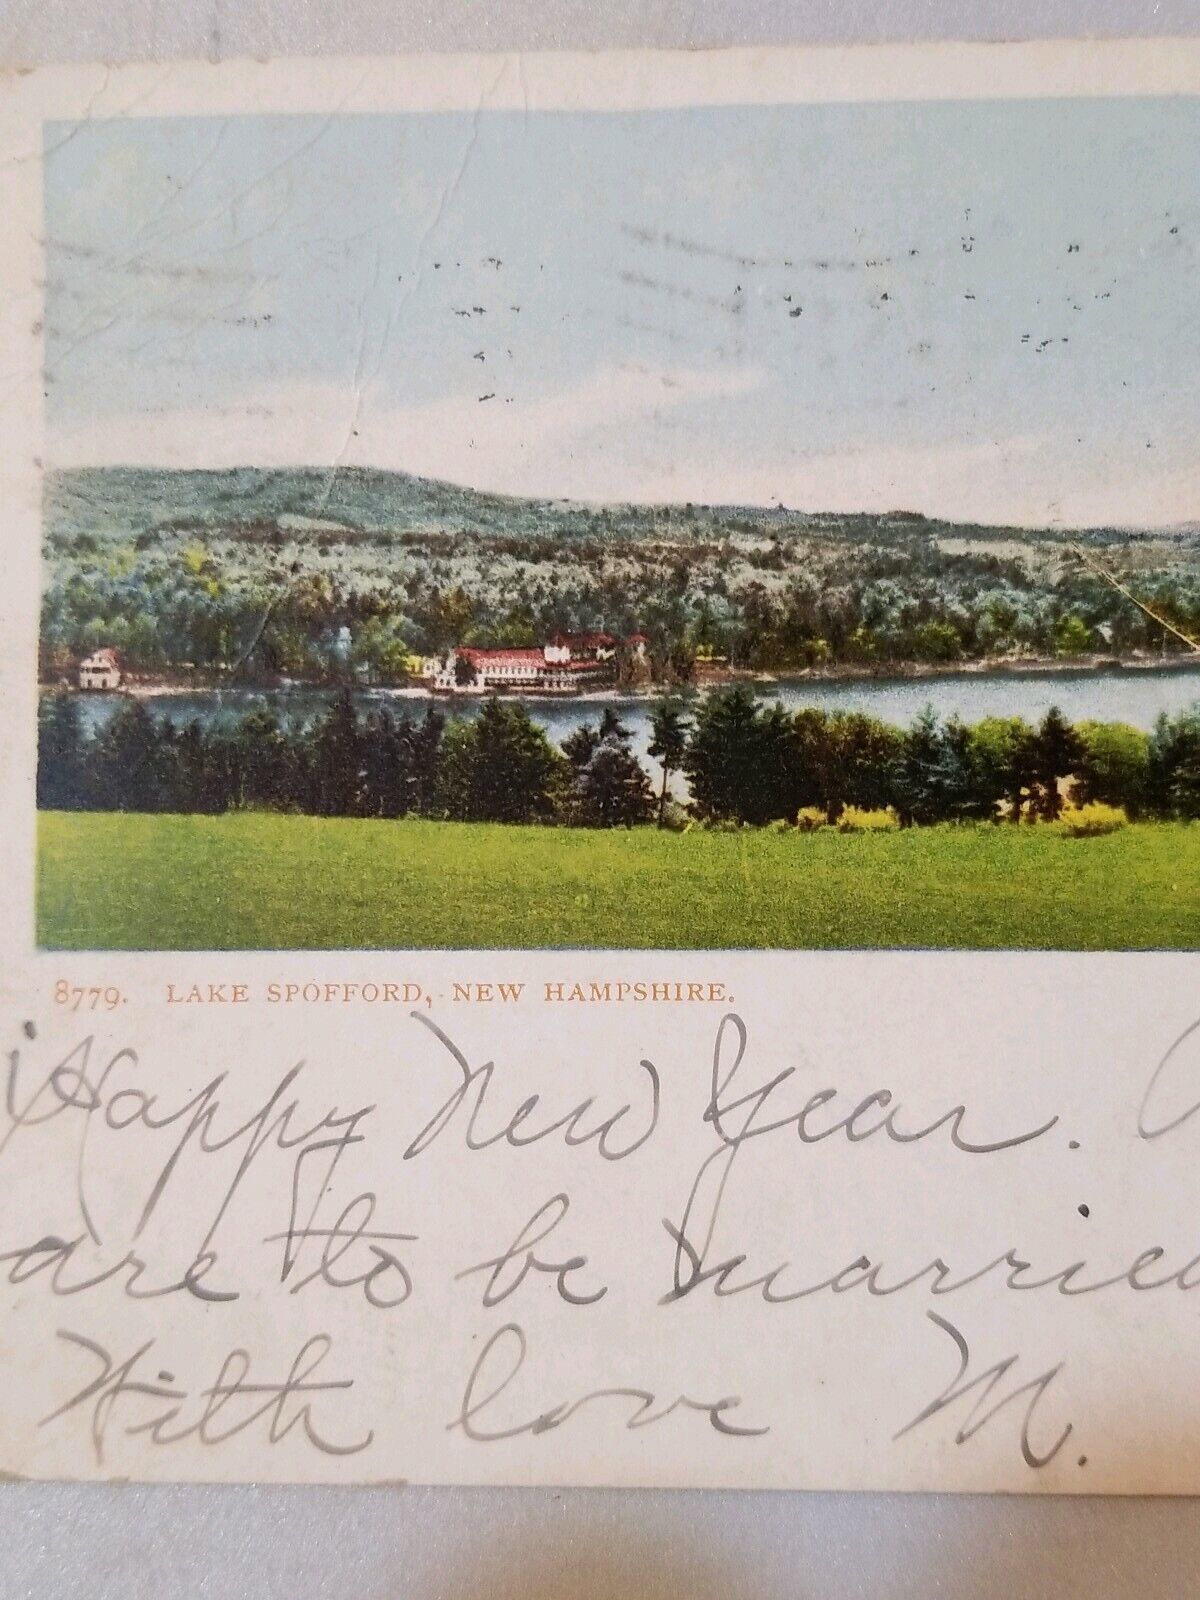 8779. LAKE SPOFFORD, NEW HAMPSHIRE.
Happy New Year.
are to be married
With love M.